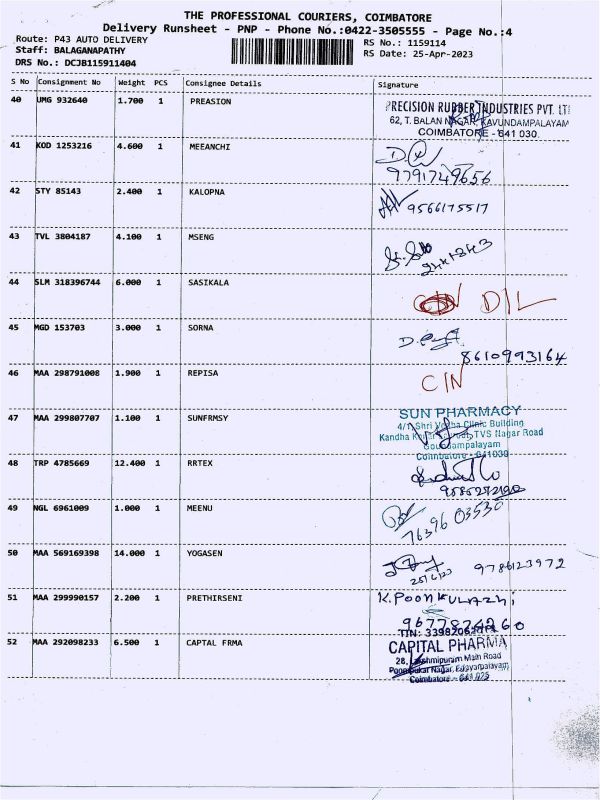 THE PROFESSIONAL COURIERS, COIMBATORE
Delivery Runsheet - PNP - Phone No.:0422-3505555 - Page No.:4
Route: P43 AUTO DELIVERY
RS No.: 1159114
Staff: BALAGANAPATHY
RS Date: 25-Apr-2023
DRS No.: DCJB115911404
S No Consignment No Weight PCS Consignee Details Signature
40 UMG 932640 1.700 1 PREASION
PRECISION RUBBER INDUSTRIES PVT. LT
62, T. BALAN NAGAR, KAVUNDAMPALAYAM
COIMBATORE - 641 030.
41 KOD 1253216 4.600 1 MEEANCHI
9791749656
42 STY 85143 2.400 1 KALOPNA
9566175517
43 TVL 3804187 4.100 1 MSENG
44 SLM 318396744 6.000 1 SASIKALA
D/L
45 MGD 153703 3.000 1 SORNA
8610993164
46 MAA 298791008 1.900 1 REPISA
C IN
47 MAA 299807707 1.100 1 SUNFRMSY
SUN PHARMACY
4/1 Shri Clinic Building
Kandha TVS Nagar Road
Goundampalayam
Coimbatore - 641030
48 TRP 4785669 12.400 1 RRTEX
49 NGL 6961009 1.000 1 MEENU
76396 03530
50 MAA 569169398 14.000 1 YOGASEN
9786123972
51 MAA 299990157 2.200 1 PRETHIRSENI
K. POONKULAZHI
9677826260
52 MAA 292098233 6.500 1 CAPTAL FRMA
CAPITAL PHARMA
28, Lakshmipuram Main Road
Nagar, Edayarpalayam
Coimbatore - 641 025